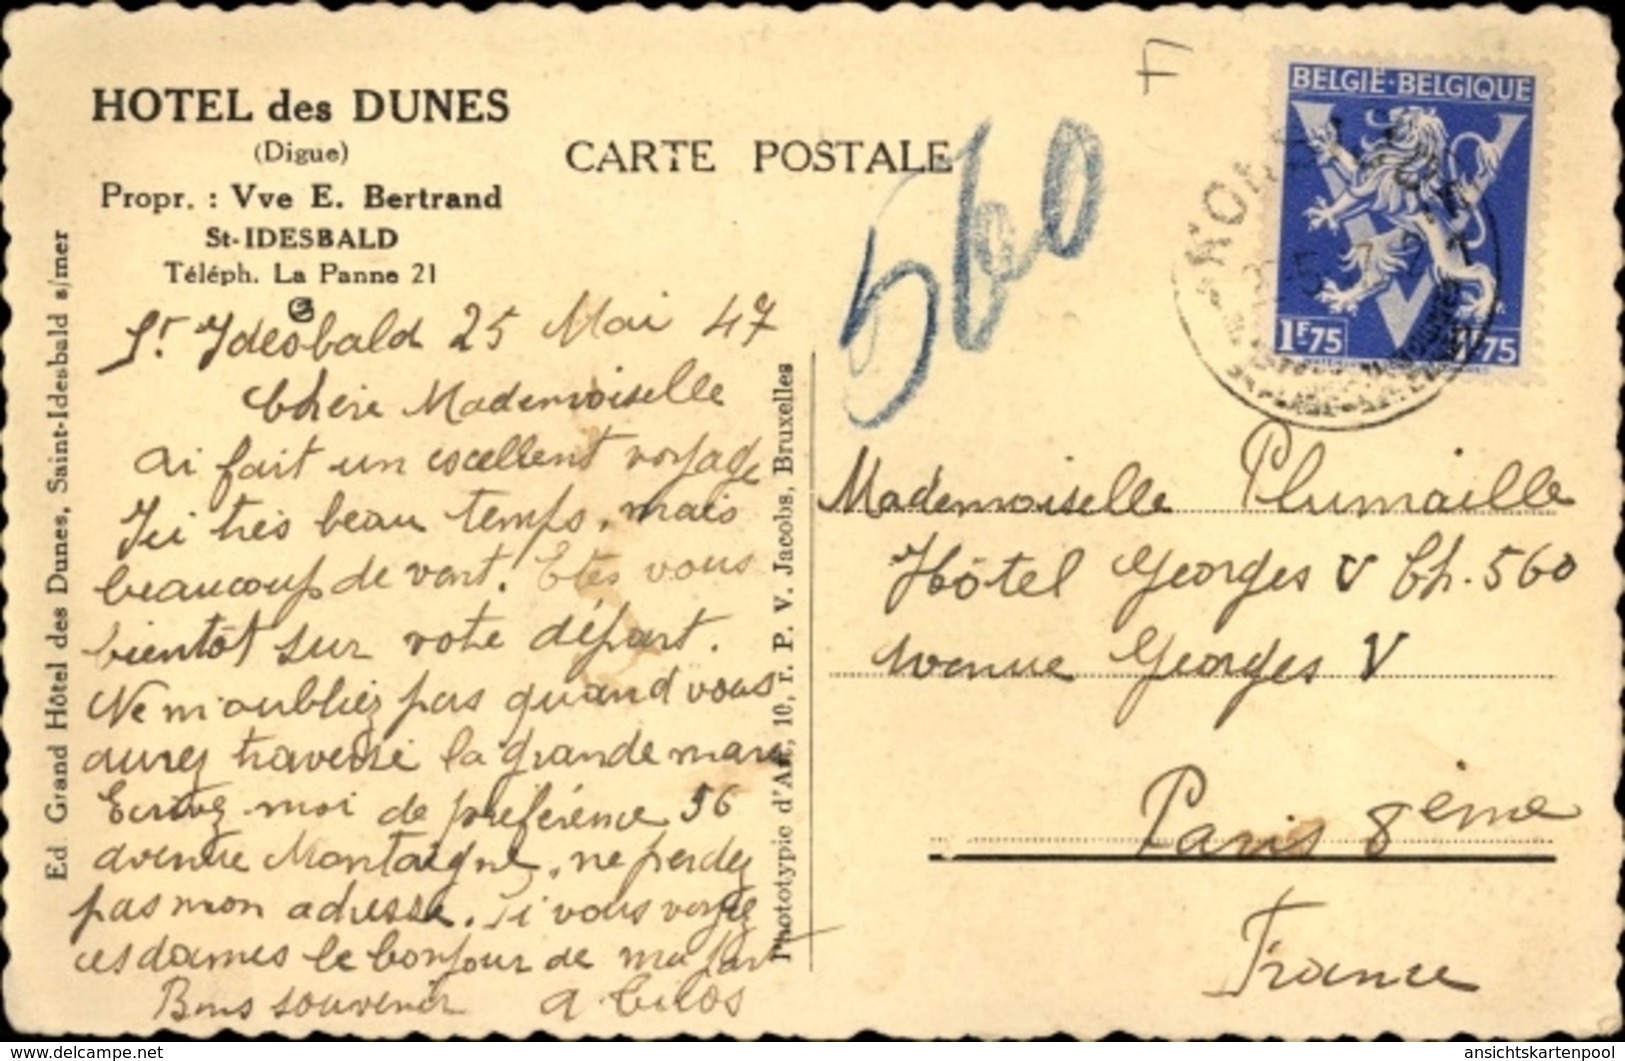 HOTEL des DUNES
(Digue)
Propr. : Vve E. Bertrand
St-IDESBALD
Téléph. La Panne 21
CARTE POSTALE
560
BELGIË-BELGIQUE
1F75
1F75
St Ydesbald 25 Mai 47
Chère Mademoiselle
ai fait un excellent voyage
Ici très beau temps, mais
beaucoup de vent. Etes vous
bientôt sur votre départ.
Ne m'oubliez pas quand vous
aurez traversé la grande mare
Ecrivez moi de préférence 56
avenue Montaigne, ne perdez
pas mon adresse. Si vous voyez
ces dames le bonjour de ma part
Bons souvenir A
Mademoiselle Plumaille
Hôtel Georges V Ch. 560
Avenue Georges V
Paris 8ème
France
Ed. Grand Hôtel des Dunes, Saint-Idesbald s/mer
Phototypie d'Art, 10, r. P. V. Jacobs, Bruxelles
delcampe.net
ansichtskartenpool